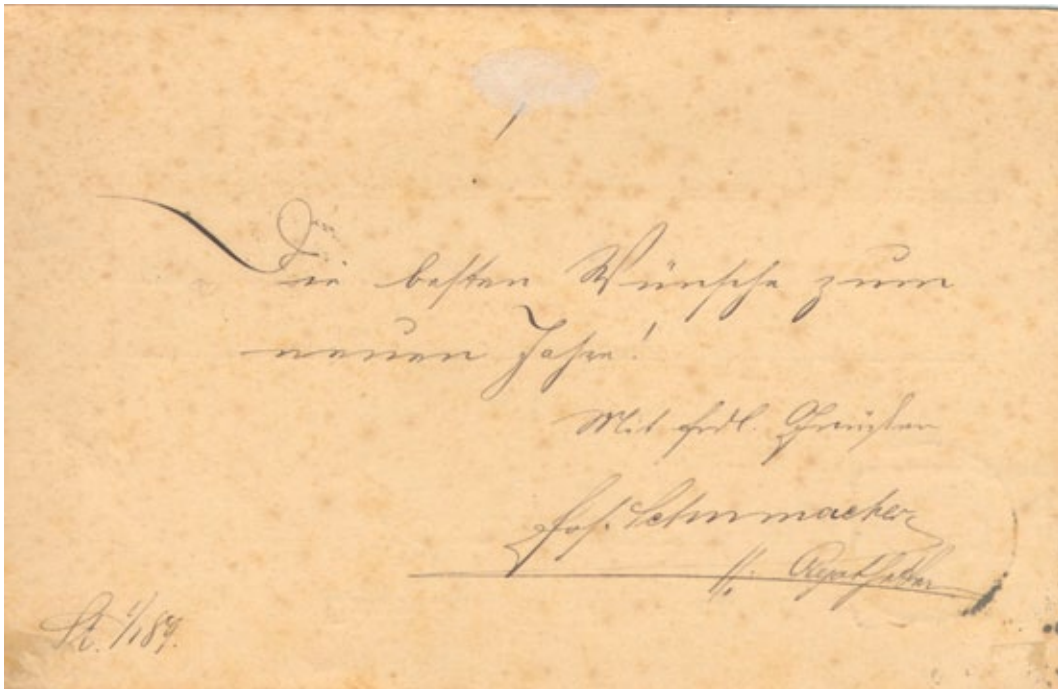 Die besten Wünsche zum
neuen Jahre!
Mit frdl. Grüßen
Jos. Schumacher
Apotheker
1/1 89.